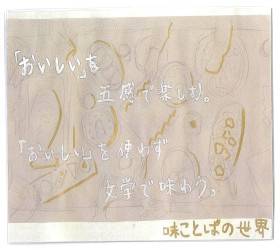 「おいしい」を
五感で楽しむ。
「おいしい」を使わず
文学で味わう。
味ことばの世界